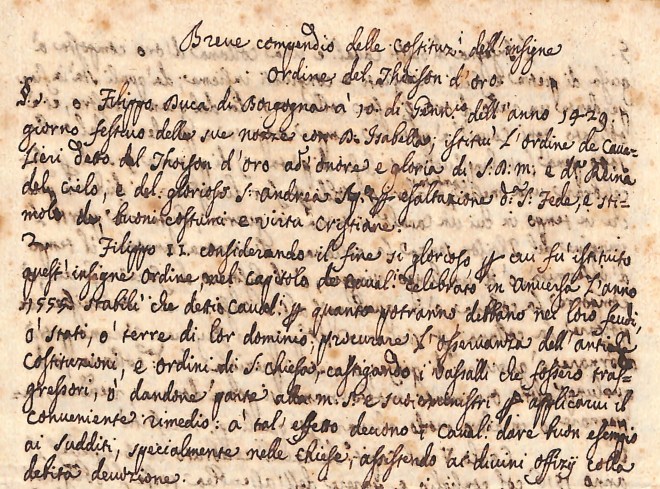 Breve compendio delle Costituz.i dell'insigne
Ordine del Thoison d'oro.
§ 1.o Filippo Duca di Borgogna a' 10. di Genn.io dell'anno 1429.
giorno festivo delle sue nozze con D. Isabella; istituì l'ordine de Cava=
lieri detto del Thoison d'oro ad onore e gloria di S. B. M. e d. Reina
del cielo, e del glorioso S. Andrea Ap. p esaltazione d. S. Fede, e sti=
molo de' buoni costumi e virtù Cristiane.
2. Filippo II considerando il fine sì glorioso p cui fu' istituito
quest'insigne Ordine nel Capitolo de Caval: celebrato in Anversa l'anno
1555. Stabilì che detti Caval: p quanto potranno debbano nei loro feudi,
o' stati, o' terre di lor dominio procurare l'osservanza dell'antiche
Costituzioni, e ordini di S. Chiesa, castigando i vassalli che fossero tras=
gressori, o' dandone parte alla M. S. e suoi ministri p applicarvi il
conveniente rimedio: a' tal effetto devono i Caval: dare buon esempio
ai sudditi, specialmente nelle chiese, assistendo ai divini offizij colla
debita devozione.